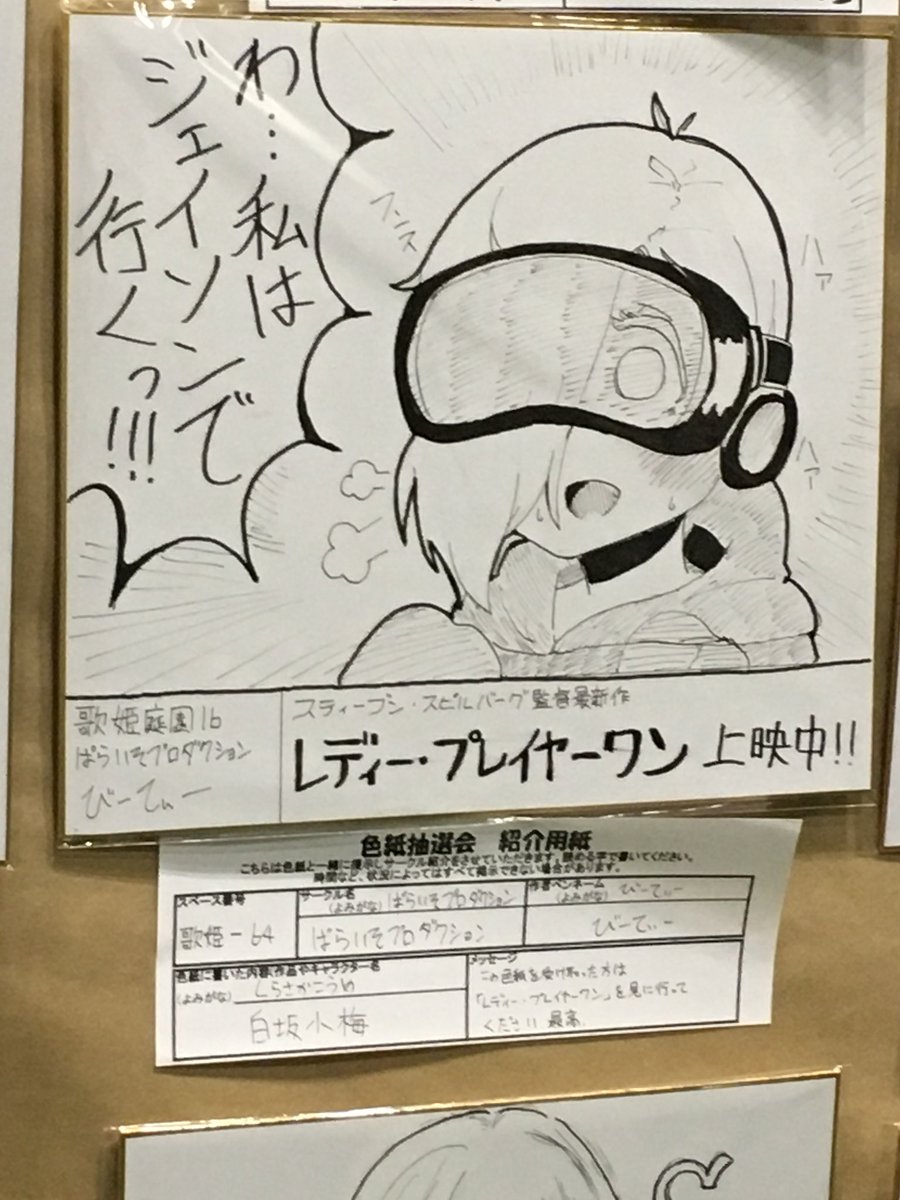 わ…私は
ジェイソンで
行くっ!!!
フンス
ハァ
ハァ
歌姫庭園16
ぱらいそプロダクション
びーてぃー
スティーブン・スピルバーグ監督最新作
レディー・プレイヤーワン 上映中!!
色紙抽選会 紹介用紙
こちらは色紙と一緒に掲示しサークル紹介をさせていただきます。読める字で書いてください。
時間など、状況によってはすべて掲示できない場合があります。
スペース番号
歌姫-64
サークル名
(よみがな) ぱらいそプロダクション
ぱらいそプロダクション
作者ペンネーム
(よみがな) びーてぃー
びーてぃー
色紙に書いた内容(作品やキャラクター名
(よみがな) しらさかこうめ
白坂小梅
メッセージ
この色紙を受け取った方は
「レディー・プレイヤーワン」を見に行って
ください 最高.